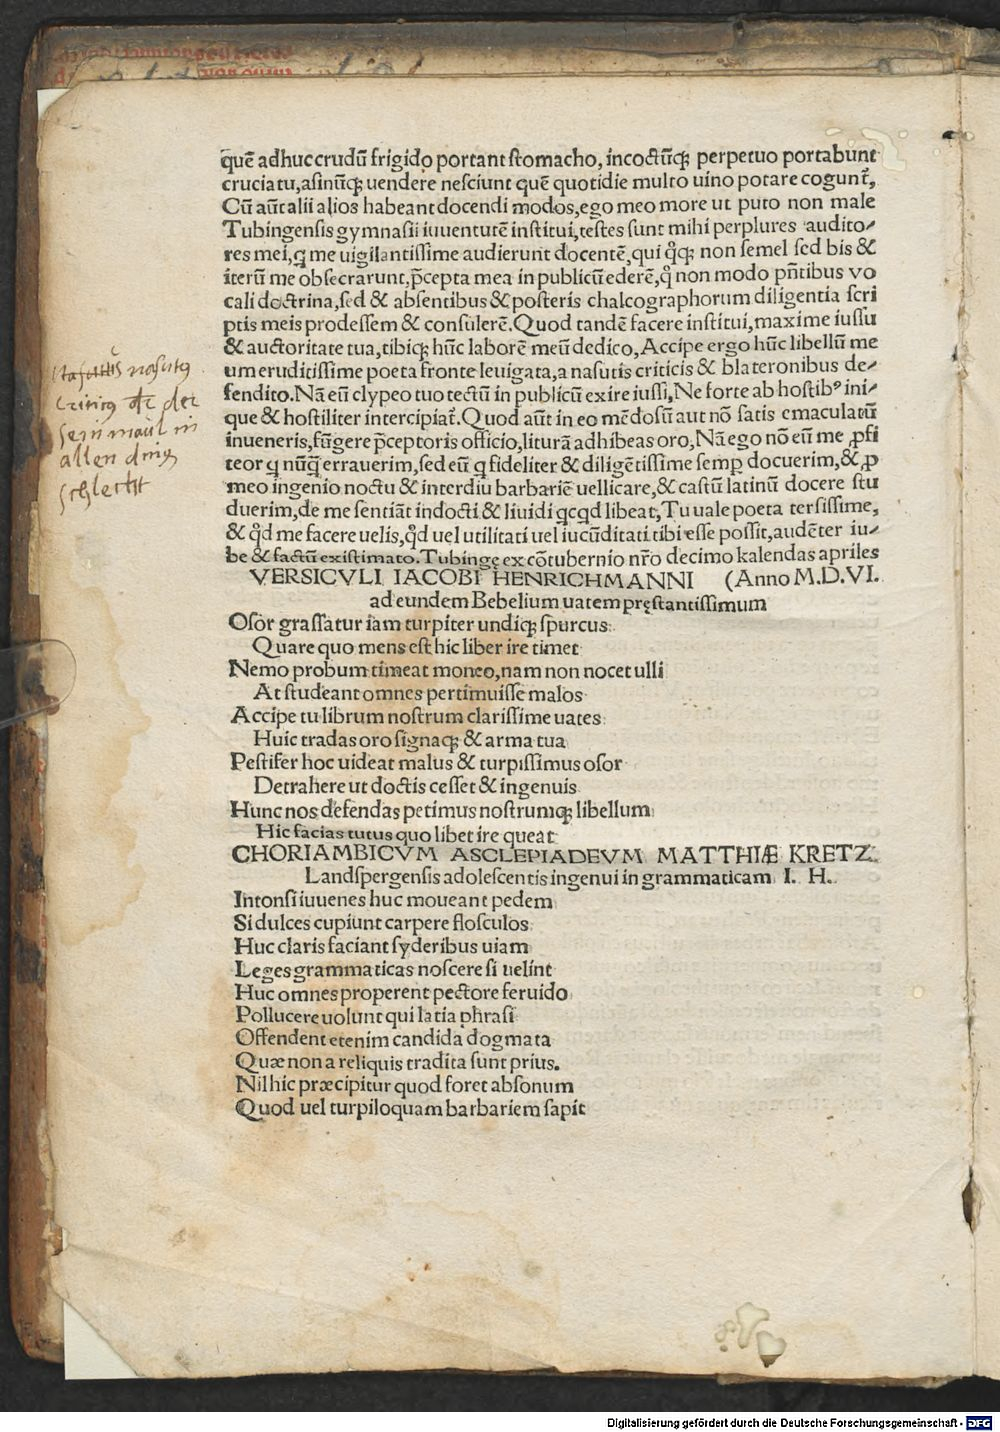 quē adhuc crudū frigido portant stomacho, incoctūq; perpetuo portabunt
cruciatu, asinūq; uendere nesciunt quē quotidie multo uino potare cogunt̃,
Cū aūt alii alios habeant docendi modos, ego meo more ut puto non male
Tubingensis gymnasii iuuentutē institui, testes sunt mihi perplures audito-
res mei, q me uigilantissime audierunt docentē, qui qͦq; non semel sed bis &
iterū me obsecrarunt, p̃cepta mea in publicū ederē, qͦ non modo pñtibus vo
cali doctrina, sed & absentibus & posteris chalcographorum diligentia scri
ptis meis prodessem & consulerē. Quod tandē facere institui, maxime iussu
& auctoritate tua, tibiq; hūc laborē meū dedico, Accipe ergo hūc libellū me
um eruditissime poeta fronte leuigata, a nasutis criticis & blateronibus de-
fendito. Nā eū clypeo tuo tectū in publicū exire iussi, Ne forte ab hostibꝰ ini-
que & hostiliter intercipiat̃. Quod aūt in eo mēdosū aut nō satis emaculatū
inueneris, fūgere p̃ceptoris officio, liturā adhibeas oro, Nā ego nō eū me ꝓfi
teor q nūq̄ errauerim, sed eū q fideliter & diligētissime semꝑ docuerim, & ꝓ
meo ingenio noctu & interdiu barbariē uellicare, & castū latinū docere stu
duerim, de me sentiāt indocti & liuidi qcqd libeat, Tu uale poeta tersissime,
& qͦd me facere uelis, qͦd uel utilitati uel iucūditati tibi esse possit, audēter iu-
be & factū existimato. Tubingę ex cōtubernio nr̃o decimo kalendas apriles
VERSICVLI IACOBI HENRICHMANNI (Anno M.D.VI.
ad eundem Bebelium uatem pręstantissimum
Osor grassatur iam turpiter undiq; spurcus
Quare quo mens est hic liber ire timet
Nemo probum timeat moneo, nam non nocet ulli
At studeant omnes pertimuisse malos
Accipe tu librum nostrum clarissime uates
Huic tradas oro signaq; & arma tua
Pestifer hoc uideat malus & turpissimus osor
Detrahere ut doctis cesset & ingenuis
Hunc nos defendas petimus nostrumq; libellum
Hic facias tutus quo libet ire queat
CHORIAMBICVM ASCLEPIADEVM MATTHIÆ KRETZ
Landspergensis adolescentis ingenui in grammaticam I. H.
Intonsi iuuenes huc moueant pedem
Si dulces cupiunt carpere flosculos
Huc claris faciant syderibus uiam
Leges grammaticas noscere si uelint
Huc omnes properent pectore feruido
Pollucere uolunt qui latia phrasi
Offendent etenim candida dogmata
Quæ non a reliquis tradita sunt prius.
Nil hic præcipitur quod foret absonum
Quod uel turpiloquam barbariem sapit
nasutꝯ
Criticꝯ der
sein maul in
allen ding
schlecht
Digitalisierung gefördert durch die Deutsche Forschungsgemeinschaft - DFG